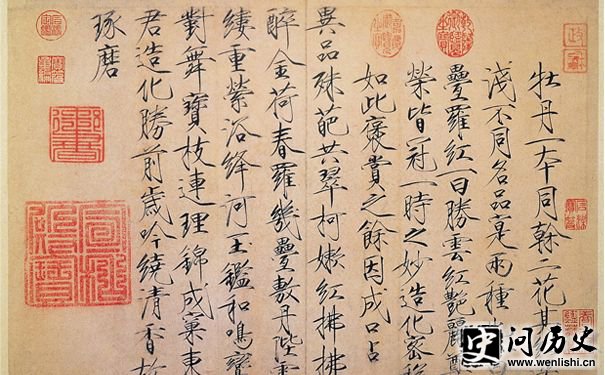 牡丹一本同榦二花其
淺不同名品寔兩種
疊羅紅一曰勝雲紅艷麗尊
榮皆冠一時之妙造化密移
如此褒賞之餘因成口占
異品殊葩共翠柯嫩紅拂拂
醉金荷春羅幾疊敷丹陛雲
縷重縈浴絳河玉鑑和鳴鸞
對舞寶枝連理錦成窠東
君造化勝前歲吟繞清香故
琢磨
问历史
www.wenlishi.cn